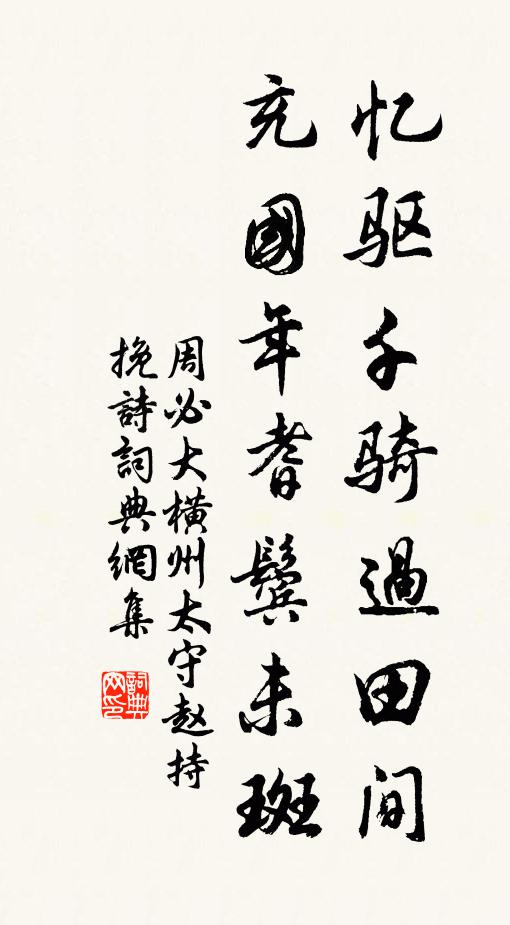 忆驱千骑過田间
充國年耆鬓未斑
周必大横州太守赵持
挽詩詞典網集
詞典网印